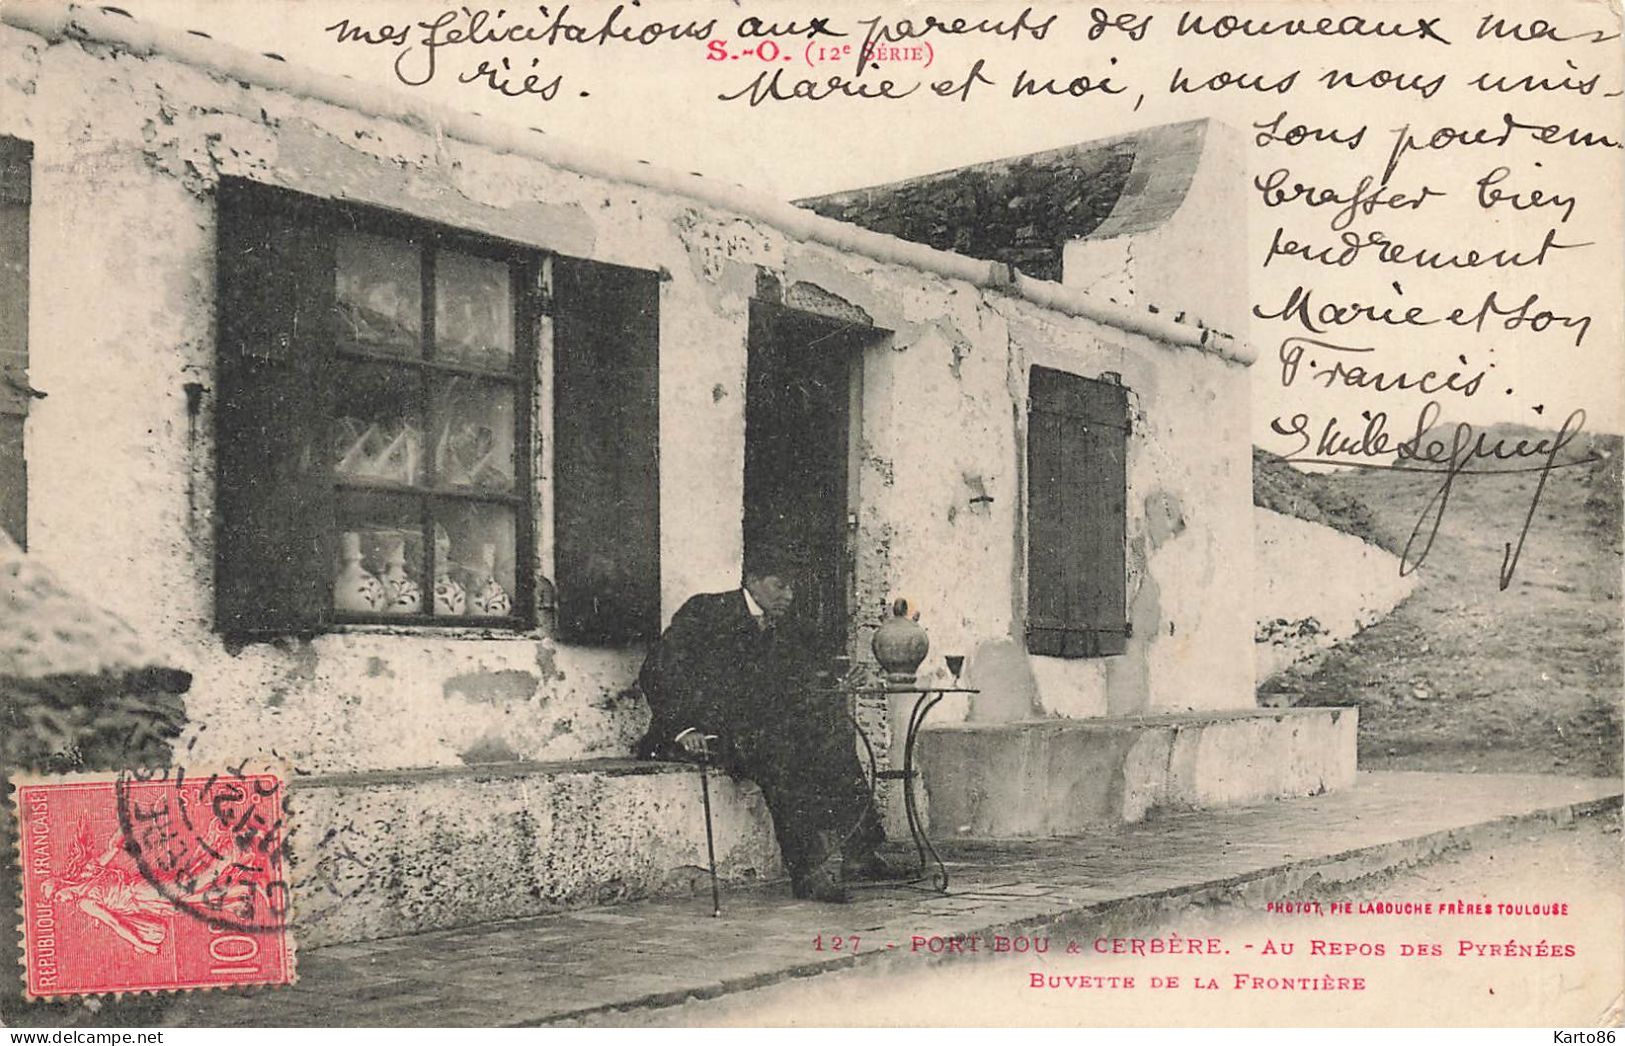 mes félicitations aux parents des nouveaux ma-
riés. Marie et moi, nous nous unis-
S.-O. (12e SÉRIE)
sons pour em
brasser bien
tendrement
Marie et son
Francis.
Emile
RÉPUBLIQUE FRANÇAISE
10c
CERBÈRE
PHOTOT, PIE LABOUCHE FRÈRES TOULOUSE
127 - PORT-BOU & CERBÈRE. - AU REPOS DES PYRÉNÉES
BUVETTE DE LA FRONTIÈRE
Karto86